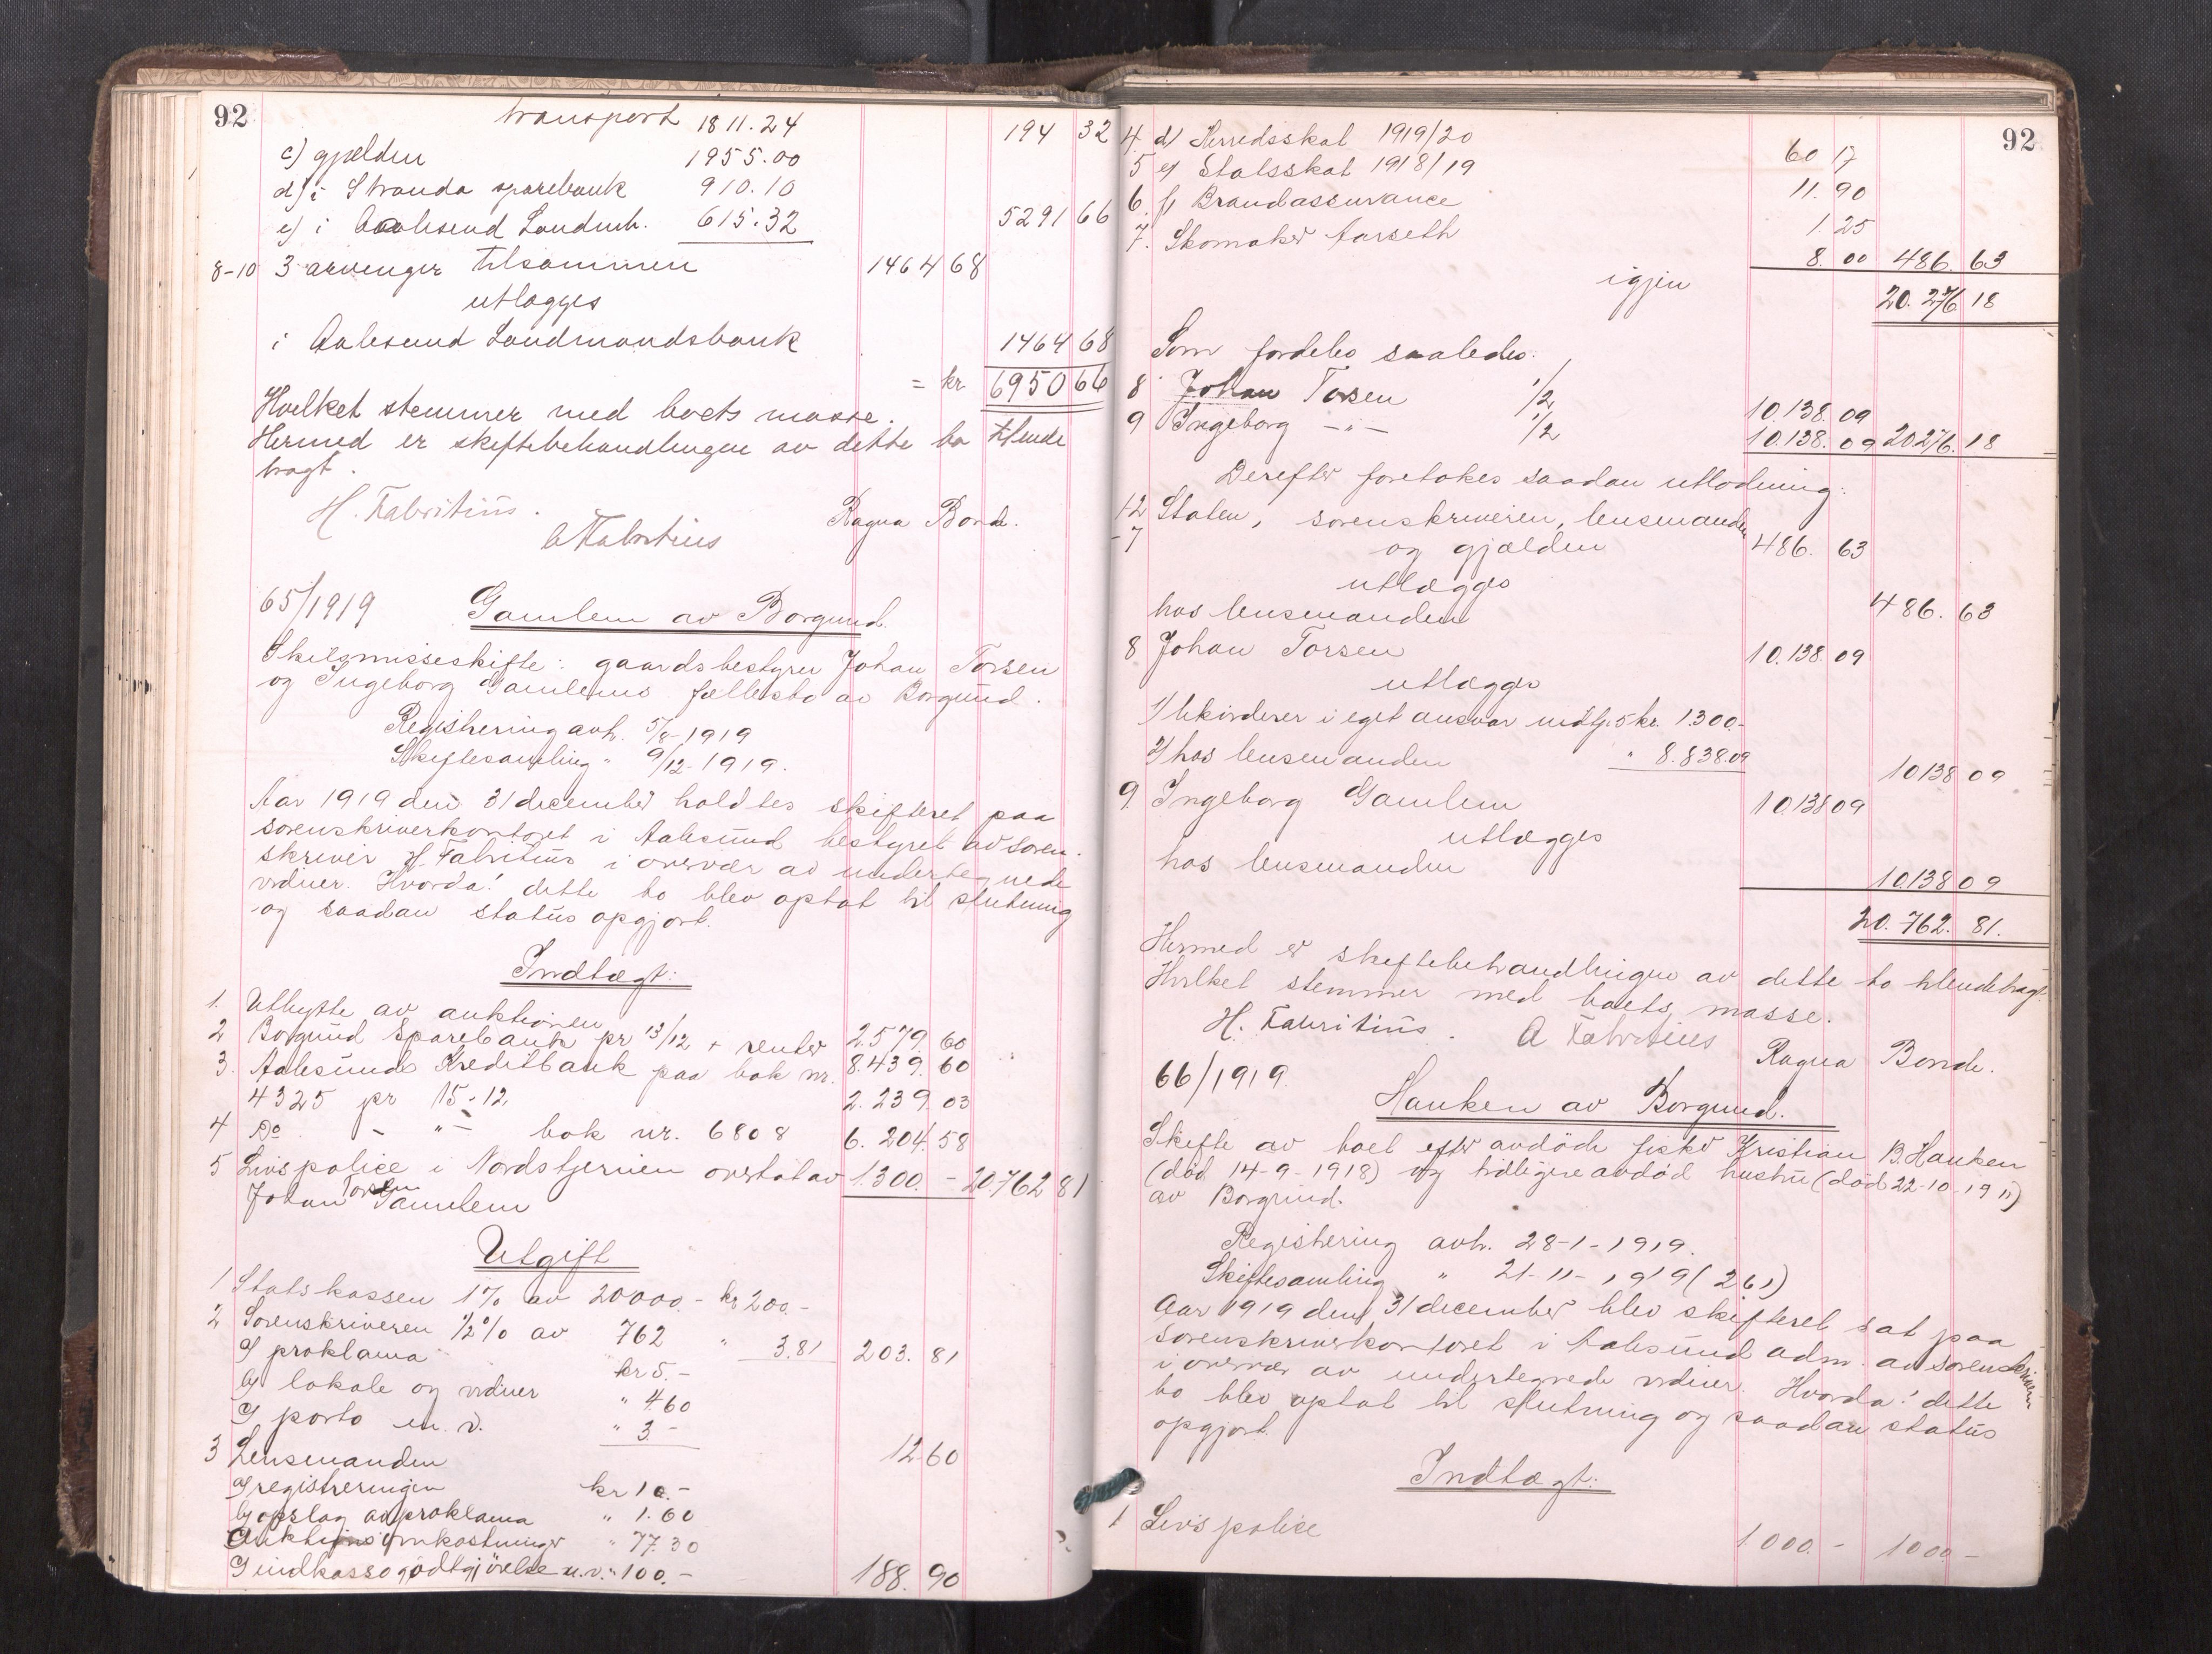 92
transport 1811.24 194 32
c) gjælden 1955.00
d) i Stranda sparebank 910.10
e) i Aalesund Landmb. 615.32 5291 66
8-10 3 arvenger tilsammen 1464 68
utlægges
i Aalesund Landmandsbank 1464 68
= kr 6950 66
Hvilket stemmer med boets masse.
Hermed er skiftebehandlingen av dette bo tilende
bragt.
H. Fabritius.
A Fabritius Ragna Bonde.
65/1919 Gamlem av Borgund.
Skilsmisseskifte: gaardsbestyrer Johan Torsen
og Ingeborg Gamlems fællesbo av Borgund.
Registrering avh. 5/8-1919
Skiftesamling " 9/12-1919.
Aar 1919 den 31 december holdtes skifteret paa
sorenskriverkontoret i Aalesund bestyret av soren-
skriver H. Fabritius i overvær av undertegnede
vidner. Hvorda! dette bo blev optat til slutning
og saadan status opgjort.
Indtægt:
1. Utbytte av auktionen 2.579. 60
2 Borgund Sparebank pr 13/12 + renter 8.439. 60
3. Aalesunds Kreditbank paa bok nr.
4325 pr 15-12. 2.239. 03
4 Do - " - bok nr. 6808 6.204. 58
5 Livspolice i Nordstjernen overtat av 1300. - 20.762 81
Johan Torsen Gamlem
Utgift
1 Statskassen 1% av 20000.- kr 200.-
2 Sorenskriveren 1/2% av 762 " 3.81 203. 81
a) proklama kr 5.-
b) lokale og vidner " 4.60
c) porto m. v. " 3.- 12 60
3 Lensmanden
a) registreringen kr 10.-
b) opslag av proklama " 1.60
c) auktionsomkostninger " 77.30
d) indkassogodtgjörelse m.v. " 100.- 188. 90
92
4. d) Herredsskat 1919/20 60 17
5 e) Statsskat 1918/19 11. 90
6. f) Brandassurance 1. 25
7. Skomaker Aarseth 8. 00 486. 63
igjen 20.276 18
Som fordeles saaledes:
8 Johan Torsen 1/2 10.138. 09
9 Ingeborg -"- 1/2 10.138. 09 20276. 18
Derefter foretakes saadan utlodning:
12 Staten, sorenskriveren, lensmanden
-7 og gjælden 486. 63
utlægges
hos lensmanden 486. 63
8 Johan Torsen 10.138 09
utlægges
1) livspolice i eget ansvar indtg. 5 kr. 1300.-
2) hos lensmanden " 8.838.09 10138 09
9. Ingeborg Gamlem 10138 09
utlægges
hos lensmanden 10138 09
20.762. 81.
Hermed er skiftebehandlingen av dette bo tilendebragt.
Hvilket stemmer med boets masse.
H. Fabritius. A Fabritius Ragna Bonde.
66/1919. Hanken av Borgund.
Skifte av boet efter avdöde fisker Kristian B. Hanken
(död 14-9-1918) og tidligere avdöd hustru (död 22-10-1911)
av Borgund.
Registrering avh. 28-1-1919.
Skiftesamling " 21-11-1919 (261)
Aar 1919 den 31 december blev skifteret sat paa
sorenskriverkontoret i Aalesund adm. av sorenskriveren
i overvær av undertegnede vidner. Hvorda! dette
bo blev optat til slutning og saadan status
opgjort.
Indtægt:
1 Livspolice 1.000.- 1000.-